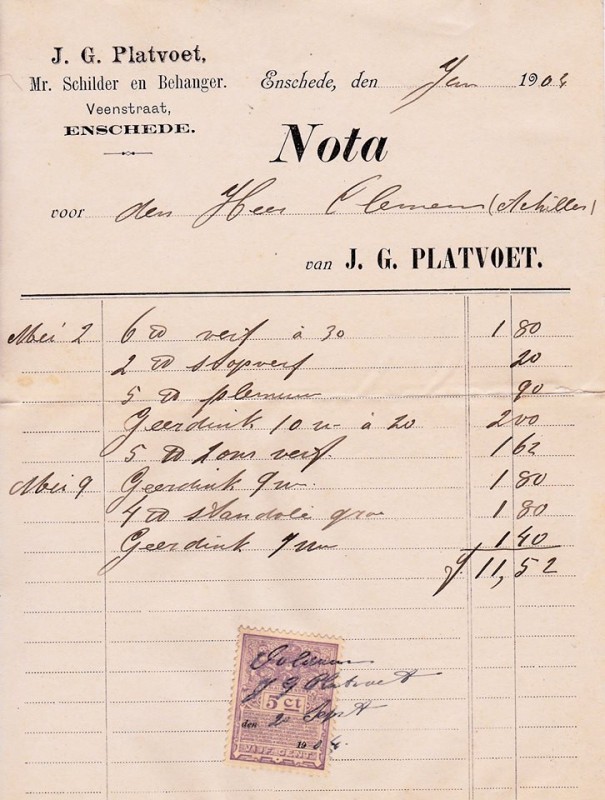 J. G. Platvoet,
Mr. Schilder en Behanger.
Veenstraat,
ENSCHEDE.
Enschede, den Jan 1904
Nota
voor den Heer Clemens (Achilles)
van J. G. PLATVOET.
Mei 2 6 verf à 30 1 80
2 stopverf 20
5 90
Geerdink 10 u à 20 2 00
5 2 ons verf 1 62
Mei 9 Geerdink 9 u. 1 80
4 standolie 1 80
Geerdink 7 u 1 40
f. 11,52
Voldaan
J G Platvoet
5 ct
den 2 Sept
1904.
VIJF CENT